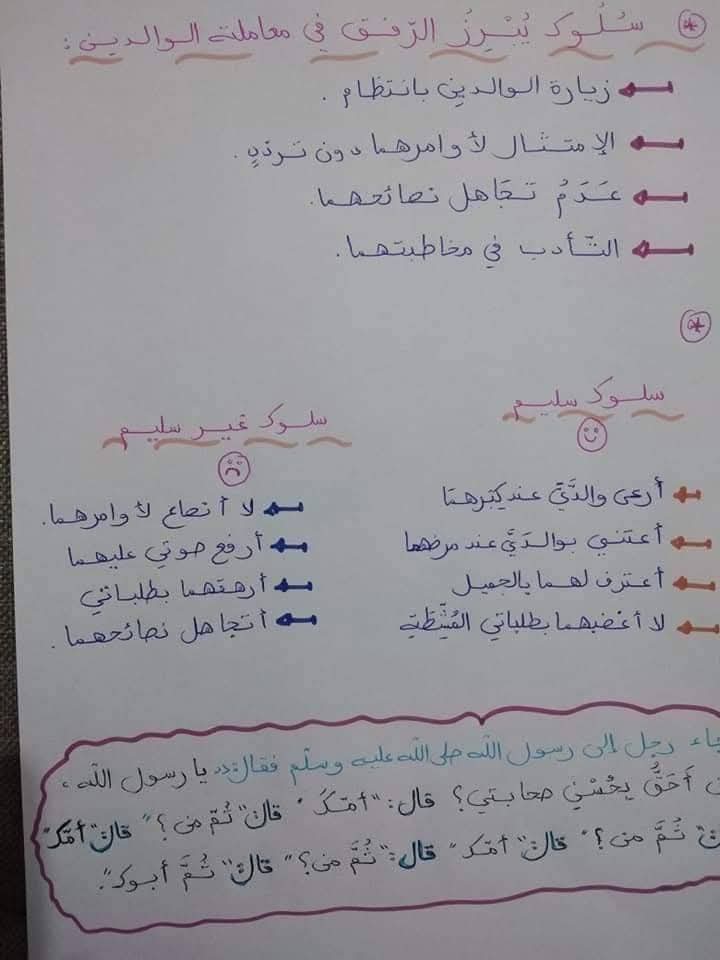 سُلُوك يُبْرِزُ الرّفق في معاملة الوالدين :
زيارة الوالدين بانتظام .
الإمتثال لأوامرهما دون تردّدٍ .
عَدَمُ تجَاهل نصائحهما.
التّأدب في مخاطبتهما.
سلوك سليم
أرعى والدَيَّ عند كِبَرهمَا
أعتني بوالدَيَّ عند مرضهما
أعترف لهما بالجميل
لا أغضبهما بطلباتي المُشِطَّةِ
سلوك غير سليم
لا أنصاع لأوامرهما.
أرفع صوتي عليهما
أرهقهما بطلباتي
أتجاهل نصائحهما.
رجل إلى رسول الله صلى الله عليه وسلّم فقال: يا رسول الله ،
أَحَقُّ بِحُسْنِ صحابتي؟ قال: "أمّكَ" قال "ثُمّ من؟" قال "أمّك"
"ثُمَّ من؟" قال "أمّك" قال: "ثُمَّ من؟" قال "ثُمَّ أبوك".